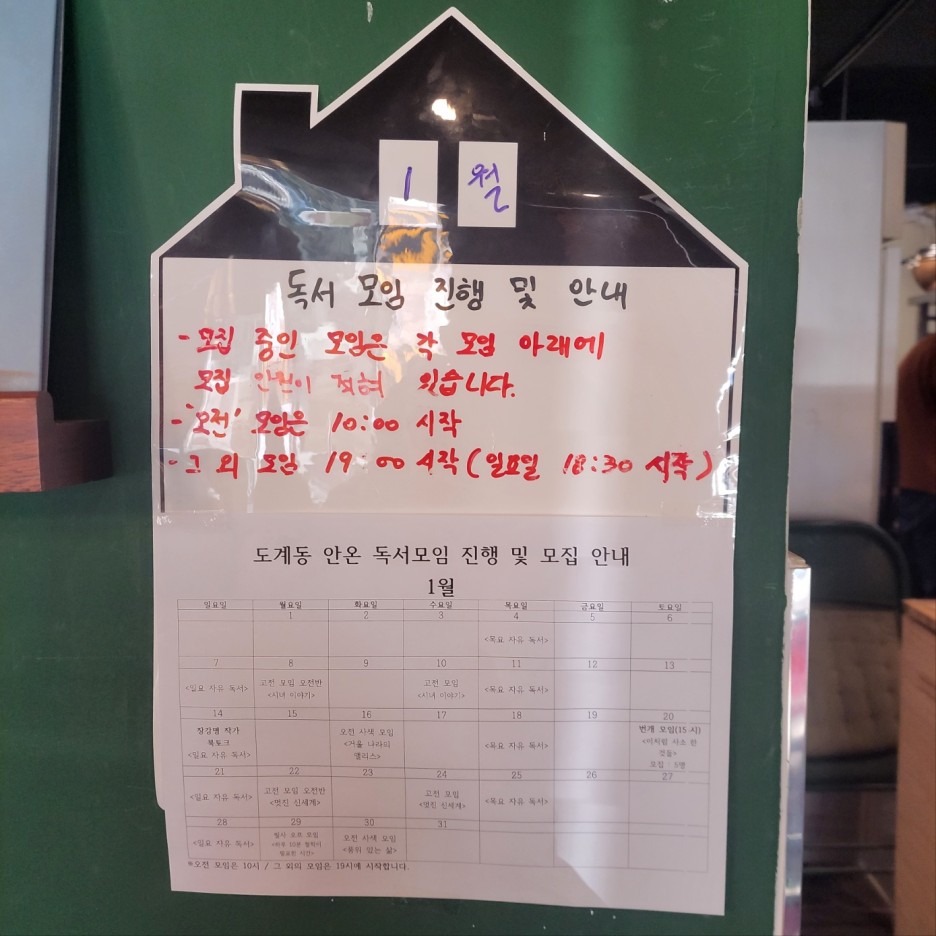 1 월
독서 모임 진행 및 안내
- 모집 중인 모임은 각 모임 아래에
모집 안원이 적혀 있습니다.
- '오전' 모임은 10:00 시작
- 그 외 모임 19:00 시작 (일요일 18:30 시작)
도계동 안온 독서모임 진행 및 모집 안내
1월
일요일 월요일 화요일 수요일 목요일 금요일 토요일
1 2 3 4 5 6
<목요 자유 독서>
7 8 9 10 11 12 13
<일요 자유 독서> 고전 모임 오전반 고전 모임 <목요 자유 독서>
<시녀 이야기> <시녀 이야기>
14 15 16 17 18 19 20
장강명 작가 오전 사색 모임 번개 모임(15시)
북토크 <거울 나라의 <목요 자유 독서> <이처럼 사소한
<일요 자유 독서> 앨리스> 것들>
모집 : 5명
21 22 23 24 25 26 27
<일요 자유 독서> 고전 모임 오전반 고전 모임 <목요 자유 독서>
<멋진 신세계> <멋진 신세계>
28 29 30 31
<일요 자유 독서> 필사 오프 모임 오전 사색 모임
<하루 10분 철학이 <품위 있는 삶>
필요한 시간>
*오전 모임은 10시 / 그 외의 모임은 19시에 시작합니다.